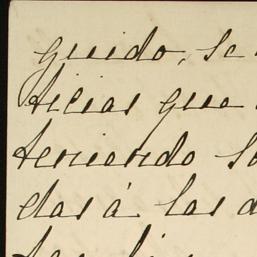 guido, se
ticias que
teniendo
das á las